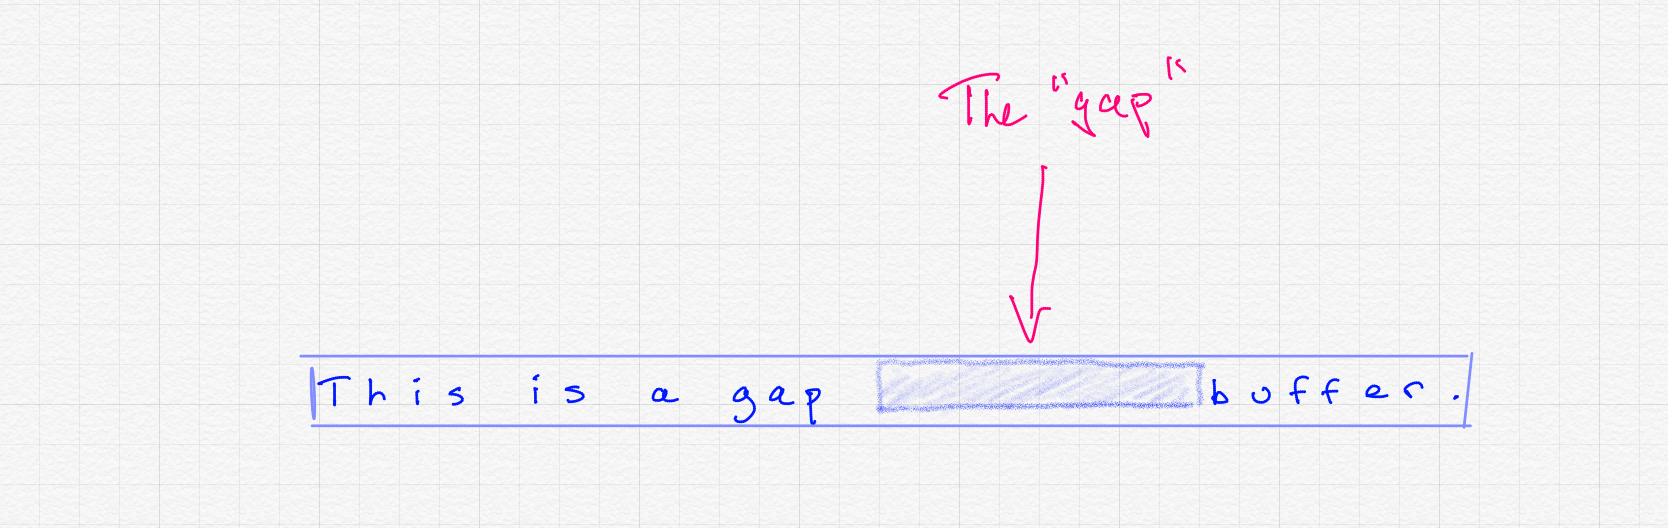 The "gap"
This is a gap buffer.